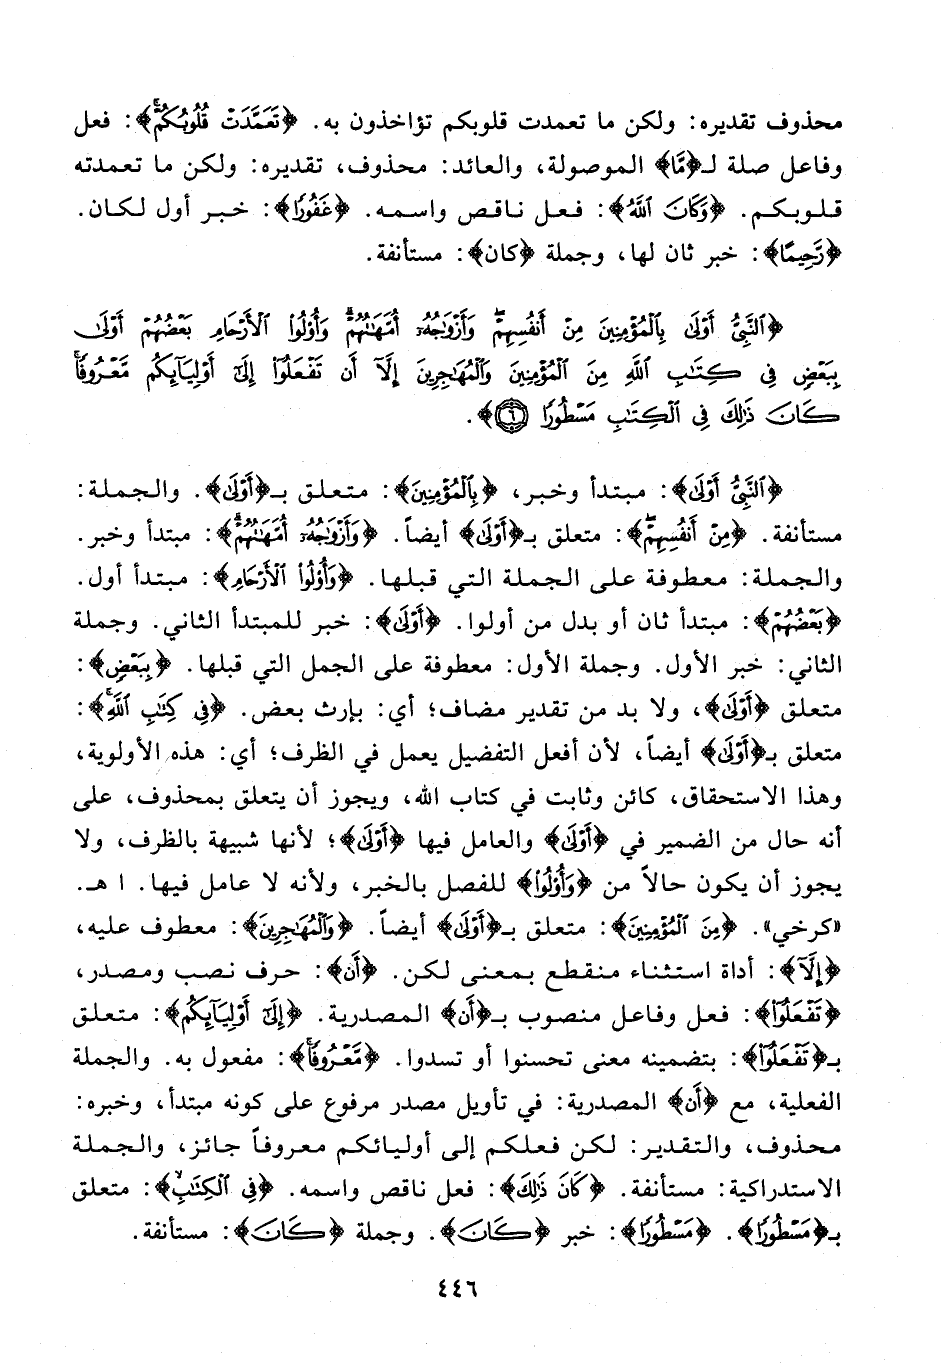 محذوف تقديره: ولكن ما تعمدت قلوبكم تؤاخذون به. ﴿تَعَمَّدَتْ قُلُوبُكُمْ﴾: فعل
وفاعل صلة لـ﴿مَّا﴾ الموصولة، والعائد: محذوف، تقديره: ولكن ما تعمدته
قلوبكم. ﴿وَكَانَ اللَّهُ﴾: فعل ناقص واسمه. ﴿غَفُورًا﴾: خبر أول لكان.
﴿رَّحِيمًا﴾: خبر ثان لها، وجملة ﴿كان﴾: مستأنفة.
﴿النَّبِيُّ أَوْلَى بِالْمُؤْمِنِينَ مِنْ أَنفُسِهِمْ وَأَزْوَاجُهُ أُمَّهَاتُهُمْ وَأُوْلُوا الْأَرْحَامِ بَعْضُهُمْ أَوْلَى
بِبَعْضٍ فِي كِتَابِ اللَّهِ مِنَ الْمُؤْمِنِينَ وَالْمُهَاجِرِينَ إِلَّا أَن تَفْعَلُوا إِلَى أَوْلِيَائِكُم مَّعْرُوفًا
كَانَ ذَلِكَ فِي الْكِتَابِ مَسْطُورًا ٦﴾.
﴿النَّبِيُّ أَوْلَى﴾: مبتدأ وخبر، ﴿بِالْمُؤْمِنِينَ﴾: متعلق بـ﴿أَوْلَى﴾. والجملة:
مستأنفة. ﴿مِنْ أَنفُسِهِمْ﴾: متعلق بـ﴿أَوْلَى﴾ أيضاً. ﴿وَأَزْوَاجُهُ أُمَّهَاتُهُمْ﴾: مبتدأ وخبر.
والجملة: معطوفة على الجملة التي قبلها. ﴿وَأُوْلُوا الْأَرْحَامِ﴾: مبتدأ أول.
﴿بَعْضُهُمْ﴾: مبتدأ ثان أو بدل من أولوا. ﴿أَوْلَى﴾: خبر للمبتدأ الثاني. وجملة
الثاني: خبر الأول. وجملة الأول: معطوفة على الجمل التي قبلها. ﴿بِبَعْضٍ﴾:
متعلق ﴿أَوْلَى﴾، ولا بد من تقدير مضاف؛ أي: بإرث بعض. ﴿فِي كِتَابِ اللَّهِ﴾:
متعلق بـ﴿أَوْلَى﴾ أيضاً، لأن أفعل التفضيل يعمل في الظرف؛ أي: هذه الأولوية،
وهذا الاستحقاق، كائن وثابت في كتاب الله، ويجوز أن يتعلق بمحذوف، على
أنه حال من الضمير في ﴿أَوْلَى﴾ والعامل فيها ﴿أَوْلَى﴾؛ لأنها شبيهة بالظرف، ولا
يجوز أن يكون حالاً من ﴿وَأُوْلُوا﴾ للفصل بالخبر، ولأنه لا عامل فيها. ا هـ.
«كرخي». ﴿مِنَ الْمُؤْمِنِينَ﴾: متعلق بـ﴿أَوْلَى﴾ أيضاً. ﴿وَالْمُهَاجِرِينَ﴾: معطوف عليه،
﴿إِلَّا﴾: أداة استثناء منقطع بمعنى لكن. ﴿أَن﴾: حرف نصب ومصدر،
﴿تَفْعَلُوا﴾: فعل وفاعل منصوب بـ﴿أَن﴾ المصدرية. ﴿إِلَى أَوْلِيَائِكُم﴾: متعلق
بـ﴿تَفْعَلُوا﴾: بتضمينه معنى تحسنوا أو تسدوا. ﴿مَّعْرُوفًا﴾: مفعول به. والجملة
الفعلية، مع ﴿أَن﴾ المصدرية: في تأويل مصدر مرفوع على كونه مبتدأ، وخبره:
محذوف، والتقدير: لكن فعلكم إلى أوليائكم معروفاً جائز، والجملة
الاستدراكية: مستأنفة. ﴿كَانَ ذَلِكَ﴾: فعل ناقص واسمه. ﴿فِي الْكِتَابِ﴾: متعلق
بـ﴿مَسْطُورًا﴾. ﴿مَسْطُورًا﴾: خبر ﴿كَانَ﴾. وجملة ﴿كَانَ﴾: مستأنفة.
٤٤٦